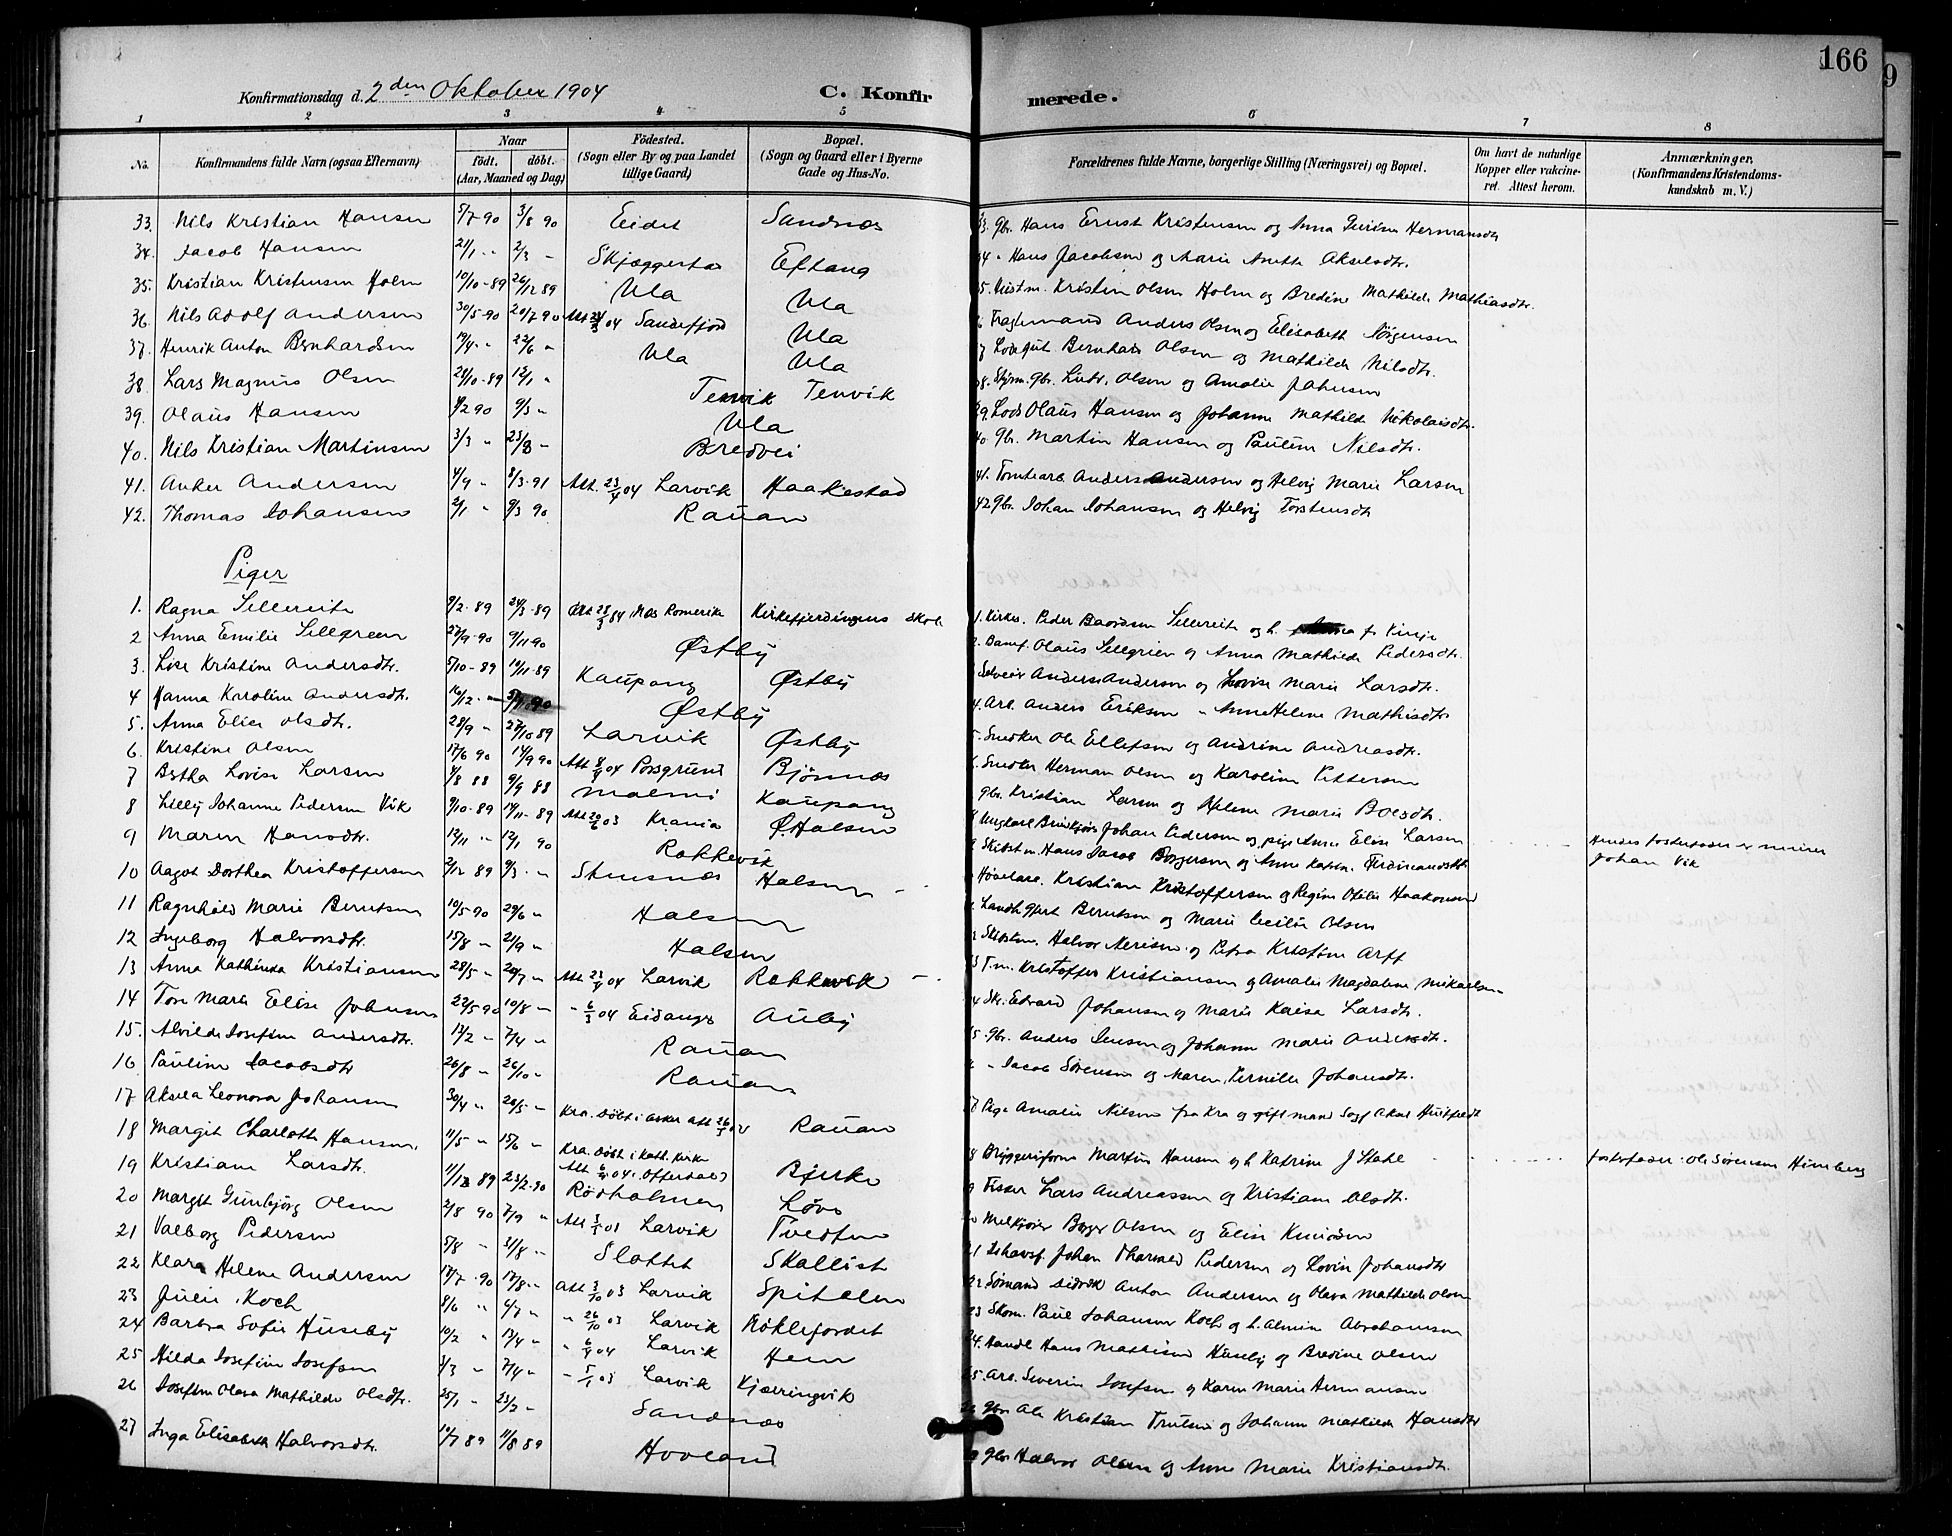 166
9
Konfirmationsdag d. 2den Oktober 1904 C. Konfirmerede.
1 2 3 4 5 6 7 8
No. Konfirmandens fulde Navn (ogsaa Efternavn) Naar födt. döbt. (Aar, Maaned og Dag) Födested. (Sogn eller By og paa Landet tillige Gaard) Bopæl. (Sogn og Gaard eller i Byerne Gade og Hus-No. Forældrenes fulde Navne, borgerlige Stilling (Næringsvei) og Bopæl. Om havt de naturlige Kopper eller vakcineret. Attest herom. Anmærkninger. (Konfirmandens Kristendomskundskab m. V.)
33. Nils Kristian Hansen 5/7 90 3/8 90 Eidet Sandnæs 33. Gbr. Hans Ernst Kristensen og Anna Hermansdtr
34. Jacob Hansen 21/1 " 2/3 - Skjæggestad Eftang 34 " Hans Jacobsen og Marie Anette Akselsdtr.
35. Kristian Kristensen Holm 10/10-89 26/12 89 Ula Ula 5. Kristen Olsen Holm og Bredine Mathilde Mathiasdtr.
36. Nils Adolf Andersen 30/5-90 20/7 90 Sandefjord Ula Anders Olsen og Elisabeth Jörgensen
37. Henrik Anton Bernhardsen 19/4 " 22/6 " Ula Ula Bernhard Olsen og Mathilde Nilsdtr.
38. Lars Magnus Olsen 28/10-89 12/1 " Tenvik Tenvik 38. gbr. Ludv. Olsen og Amalie Johnsen
39. Olaus Hansen 1/2 90 9/3 " Ula 39. Lods Olaus Hansen og Johanne Mathilde Nikolaisdtr.
40. Nils Kristian Martinsen 3/3 " 23/3 - Bredvei 40 gbr. Martin Hansen og Pauline Nilsdtr.
41. Anker Andersen 4/9 " 8/3-91 Att. 23/4 04 Larvik Haakestad 41. Tomtearb. Anders Andersen og Helvig Marie Larsen
42. Thomas Johansen 2/1 " 9/3 90 Rauan 42 gbr. Johan Johansen og Helvig Torstensdtr
Piger
1. Ragna Sellereite 9/2-89 24/3-89 Nes Romerike Kirkefjerdingens Skole 1. Kirkes. Peder Baardsen Sellereite og h.
2 Anna Emilie Sellgreen 27/9-90 9/11-90 Østby 2. Olaus Sellgreen og Anna Mathilde Pedersdtr.
3. Lise Kristine Andersdtr. 5/10-89 10/11-89 Kaupang Østby Anders Anderson og Lovise Marie Larsdtr.
4 Hanna Karoline Andersdtr. 16/12 - Østby 4. Arb. Anders Eriksen " Anne Helene Mathisdtr
5. Anna Elise Olsdtr. 28/9 " 27/10 89 Larvik Østby Snedker Ole Ellefsen og Andrine Andreasdtr.
6. Kristine Olsen 17/6 90 14/9 90 Att 8/9 04 Porsgrund Bjönnes Snedker Herman Olsen og Karoline Pettersen
7 Bertha Lovise Larsen 4/8 88 9/9 88 Malmö Kaupang gbr. Kristian Larsen og Helene Marie Boesdtr.
8 Lilly Johanne Pedersen Vik 9/10-89 14/11-89 03 Krania Ø. Halsen Ungkarl Johan Pedersen og pige Anne Elise Larsen Hendes fosterfader er murer Johan Vik
9 Maren Hansdtr. 12/11 " 12/1 90 Rakkevik Hans Jacob Borgersen og Anne Katrin. Ferdinandsdtr
10 Aagot Dorthea Kristoffersen 2/12 89 9/3 - Stensnæs Halsen Kristian Kristoffersen og Regine Otilie Haakonsen
11 Ragnhild Marie Berntsen 10/5-90 29/6 " Halsen Berntsen og Marie Cecilie Olsen
12 Ingeborg Halvorsdtr. 15/8 " 21/9 " Halsen Halvor Iversen og Petra Kristine Arff
13 Anna Kathinka Kristiansen 28/5 " 20/7 " Att 23/4 04 Larvik Rakkevik 13 T.m. Kristoffer Kristiansen og Amalie Magdalene Mikaelsen
14 Tove Marie Elise Johnsen 22/5 90 10/8 - " 6/3 04 Eidanger Auby Edvard Johansen og Marie Kaisa Larsdtr.
15. Alvilde Josefine Andersdtr. 12/2 " 7/4 " Rauan 15. gbr. Anders Jensen og Johanne Marie Andersdtr.
16 Pauline Jacobsdtr 20/8 " 26/10 - Rauan " Jacob Sörensen og Maren Pernille Johansdtr.
17 Aksela Leonora Johansen 30/4 " 26/5 - Kra. Döbt i Asker Rauan 17 Pige Amalie Nilsen fra Kra og gift mand
18 Margit Charlotte Hansen. 11/5 " 15/6 - Kra. Döbt i Kath. Kirke Bjerke 18 Martin Hansen og h. Katrine J. Stahl fosterfader: Ole Sörensen Himberg
19 Kristiane Larsdtr. 11/12 89 23/2-90 Rödholmen Löve Fisker Lars Andreassen og Kristiane Olsdtr.
20 Margit Gunbjörg Olsen 2/8 90 7/9 " Larvik Tvedten Borger Olsen og Elise Knudsen
21 Valborg Pedersen 5/8 " 31/8 - Slottet Skallist 21 Johan Tharvald Pedersen og Lovise Johansdtr
22 Klara Helene Andersen 12/7-90 17/8 - Att 3/10 03 Larvik Spitalen 22 Sömand Didrik Anton Andersen og Olava Mathilde Olsen
23 Julie Koch 8/6 " 6/7 " " 26/10 03 Larvik Röklefjordet 23 Skom. Paul Johansen Koch og h. Almine Abrahamsen
24 Barbra Sofie Huseby 10/2 " 13/4 " " 6/4 04 Larvik Hem 24. Handl Hans Mathisen Huseby og Bredine Olsen
25 Hilda Josefine Josefsen 2/3 " 7/4 " " 5/1 03 Larvik Kjærringvik 25. Arb. Severin Josefsen og Karen Marie Hermansen
26 Josefine Olava Mathilde Olsdtr. 25/1 " 23/2 - Sandnæs gbr Ole Kristian Trulsen og Johanne Mathilde Hansdtr
27 Inga Elisabeth Halvorsdtr. 10/7 89 11/8 89 Hovland gbr Halvor Olsen og Anne Marie Kristiansdtr.